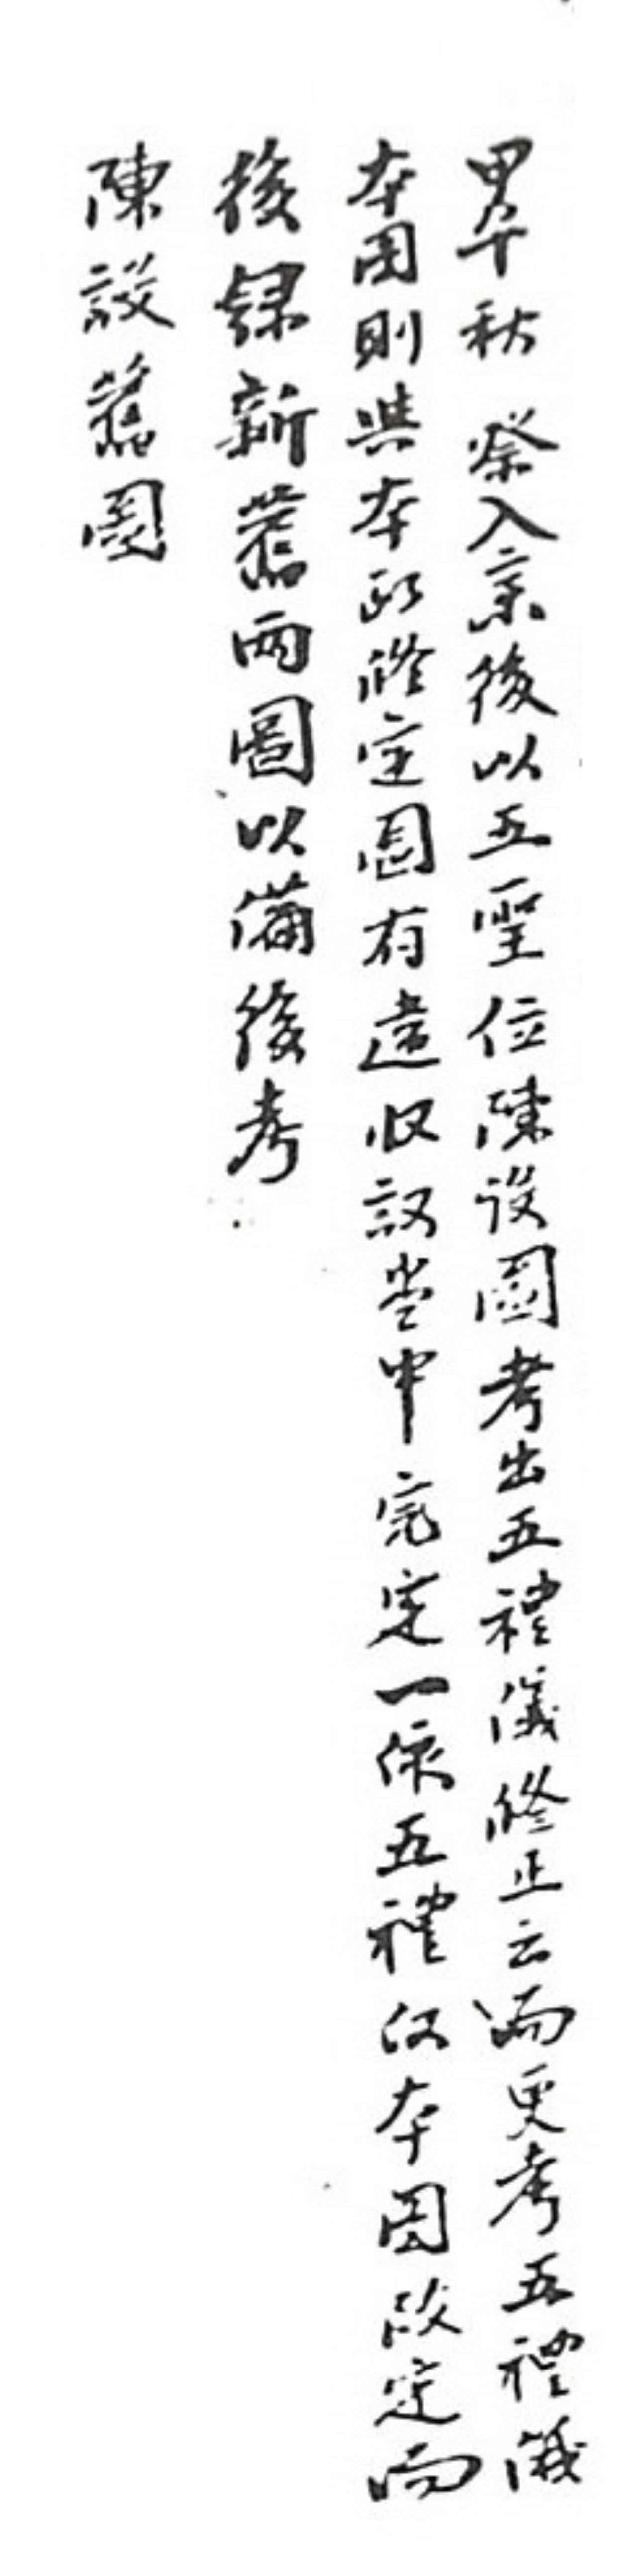 甲午秋祭入齋後以五聖位陳設圖考出五禮儀修正云而更考五禮儀
本圖則與本所修定圖有違收議堂中完定一依五禮仪本圖改定而
後錄新舊兩圖以備後考
陳設舊圖